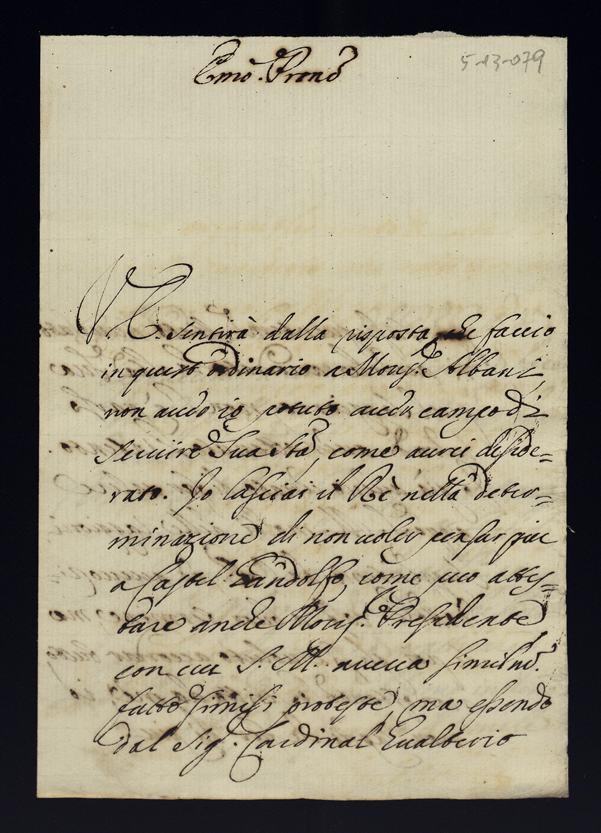 Emo. Prone
5-13-079
V. E. sentirà dalla risposta, che faccio
in questo ordinario a Monsr. Albani,
non aver io potuto aver campo di
servire Sua Stà, come avrei deside-
rato. Io lasciai il Rè nella deter-
minazione di non voler pensar più
a Castel Gandolfo, come può attes-
tare anche Monsr. Presidente
con cui S. M. aveva similme.
fatto simili proteste, ma essendo
dal Sig. Cardinal Gualterio